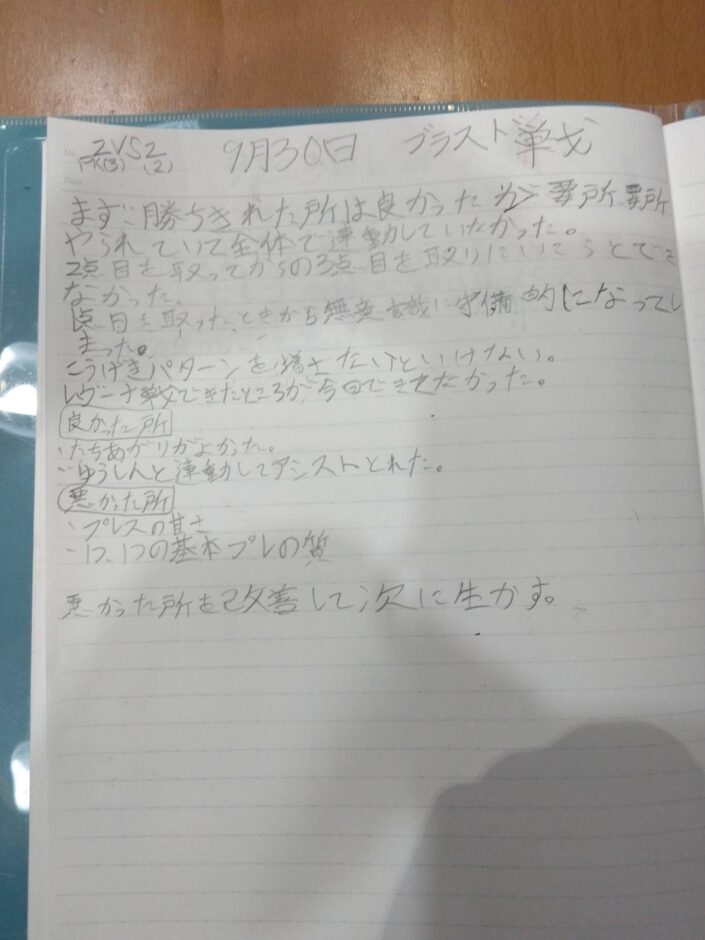 2VS2 9月30日 ブラスト戦
PK(3) (2)
まず勝ちきれた所は良かったが要所、要所
やられていて全体で連動していなかった。
2点目を取ってからの3点目を取りに
なかった。
1点目を取ったときから無意識に守備的になってし
まった。
こうげきパターンを増さないといけない。
レヴーナ戦できたところが今回できなかった。
良かった所
・たちあがりがよかった。
・ゆうしんと連動してアシストとれた。
悪かった所
・プレスの甘さ
・1つ、1つの基本プレの質
悪かった所を改善して次に生かす。